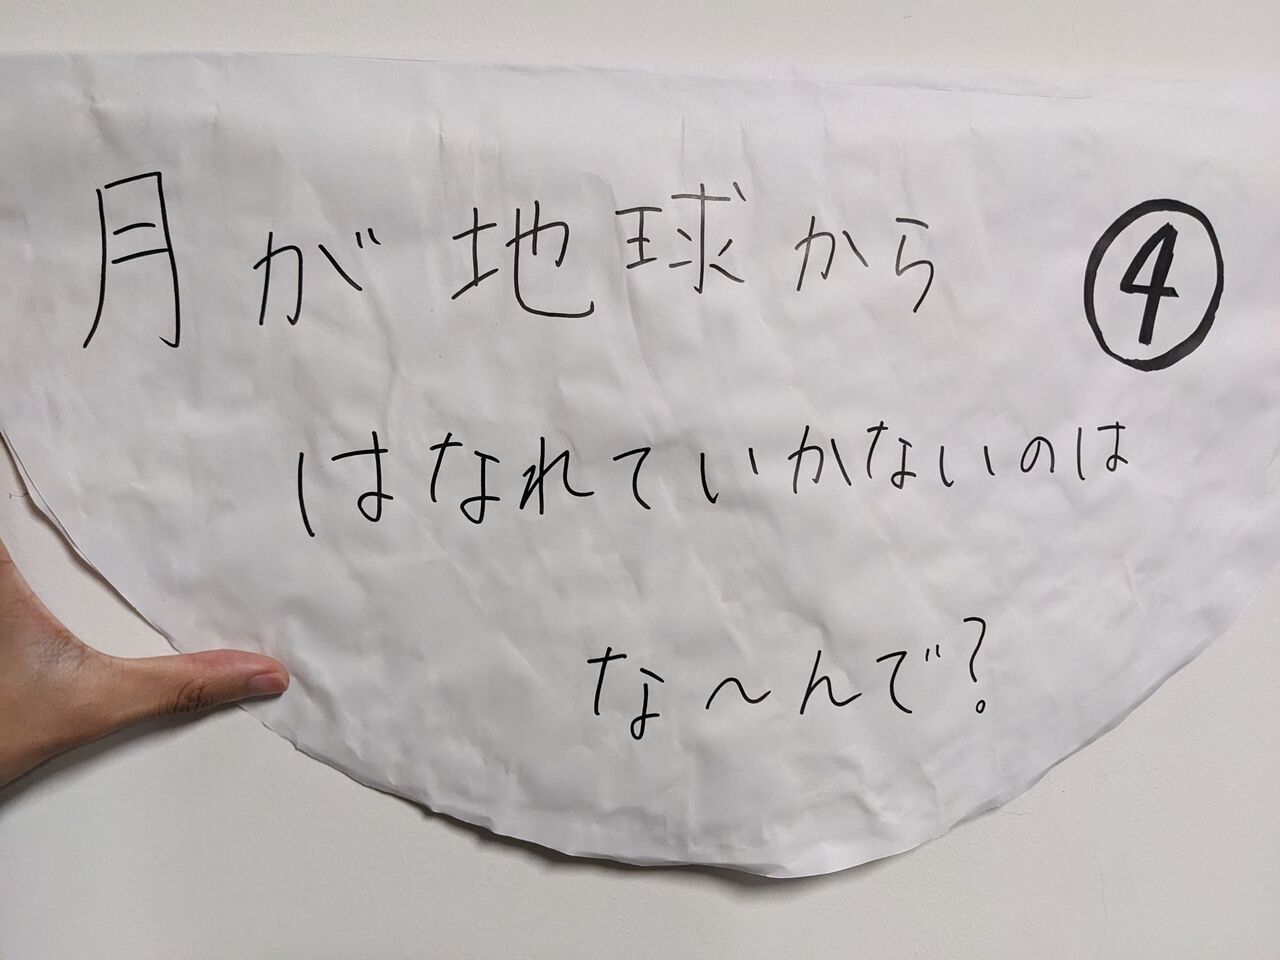 月が地球から
④
はなれていかないのは
な〜んで?